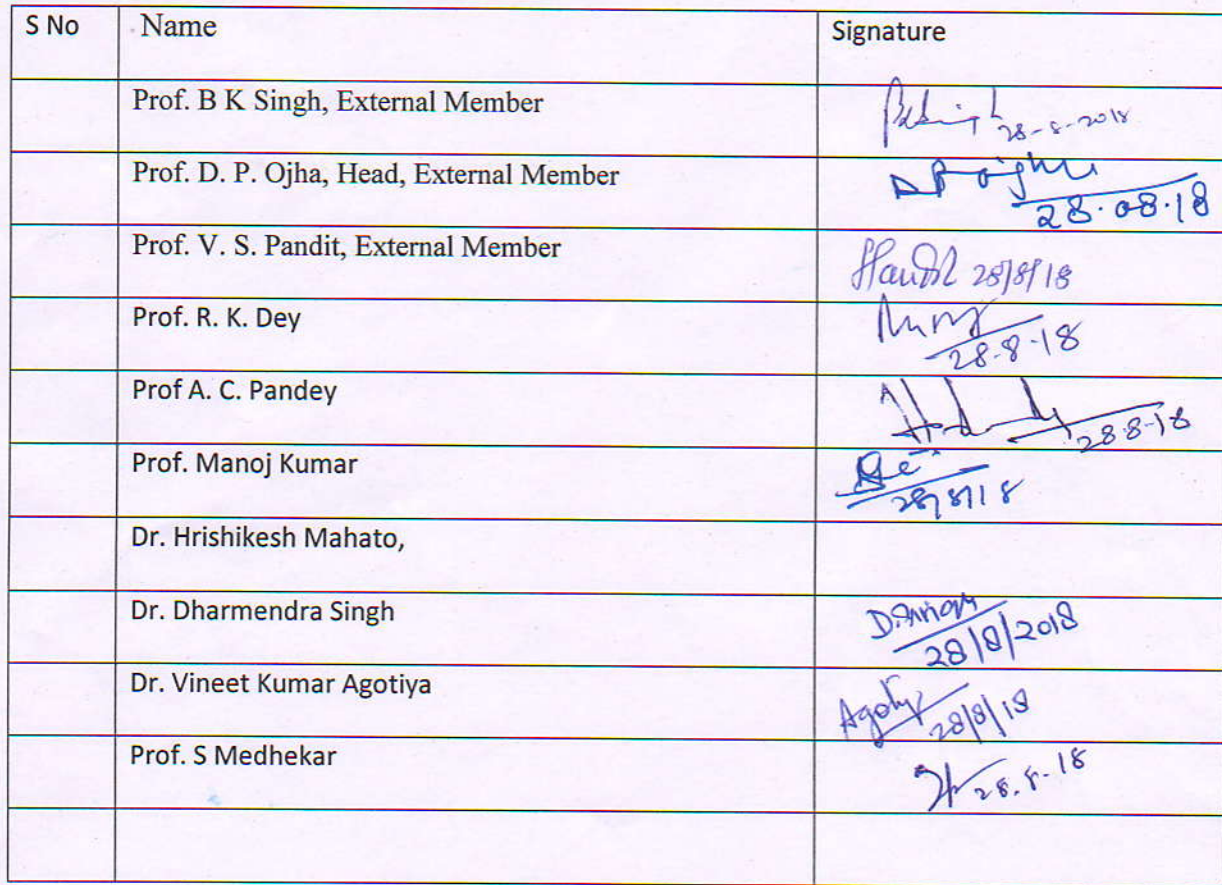 S No Name Signature
Prof. B K Singh, External Member BKSingh 28-8-2018
Prof. D. P. Ojha, Head, External Member D P Ojha 28.08.18
Prof. V. S. Pandit, External Member 28/8/18
Prof. R. K. Dey 28.8.18
Prof A. C. Pandey 28.8.18
Prof. Manoj Kumar 28/8/18
Dr. Hrishikesh Mahato,
Dr. Dharmendra Singh 28/8/2018
Dr. Vineet Kumar Agotiya 28/8/18
Prof. S Medhekar 28.8.18